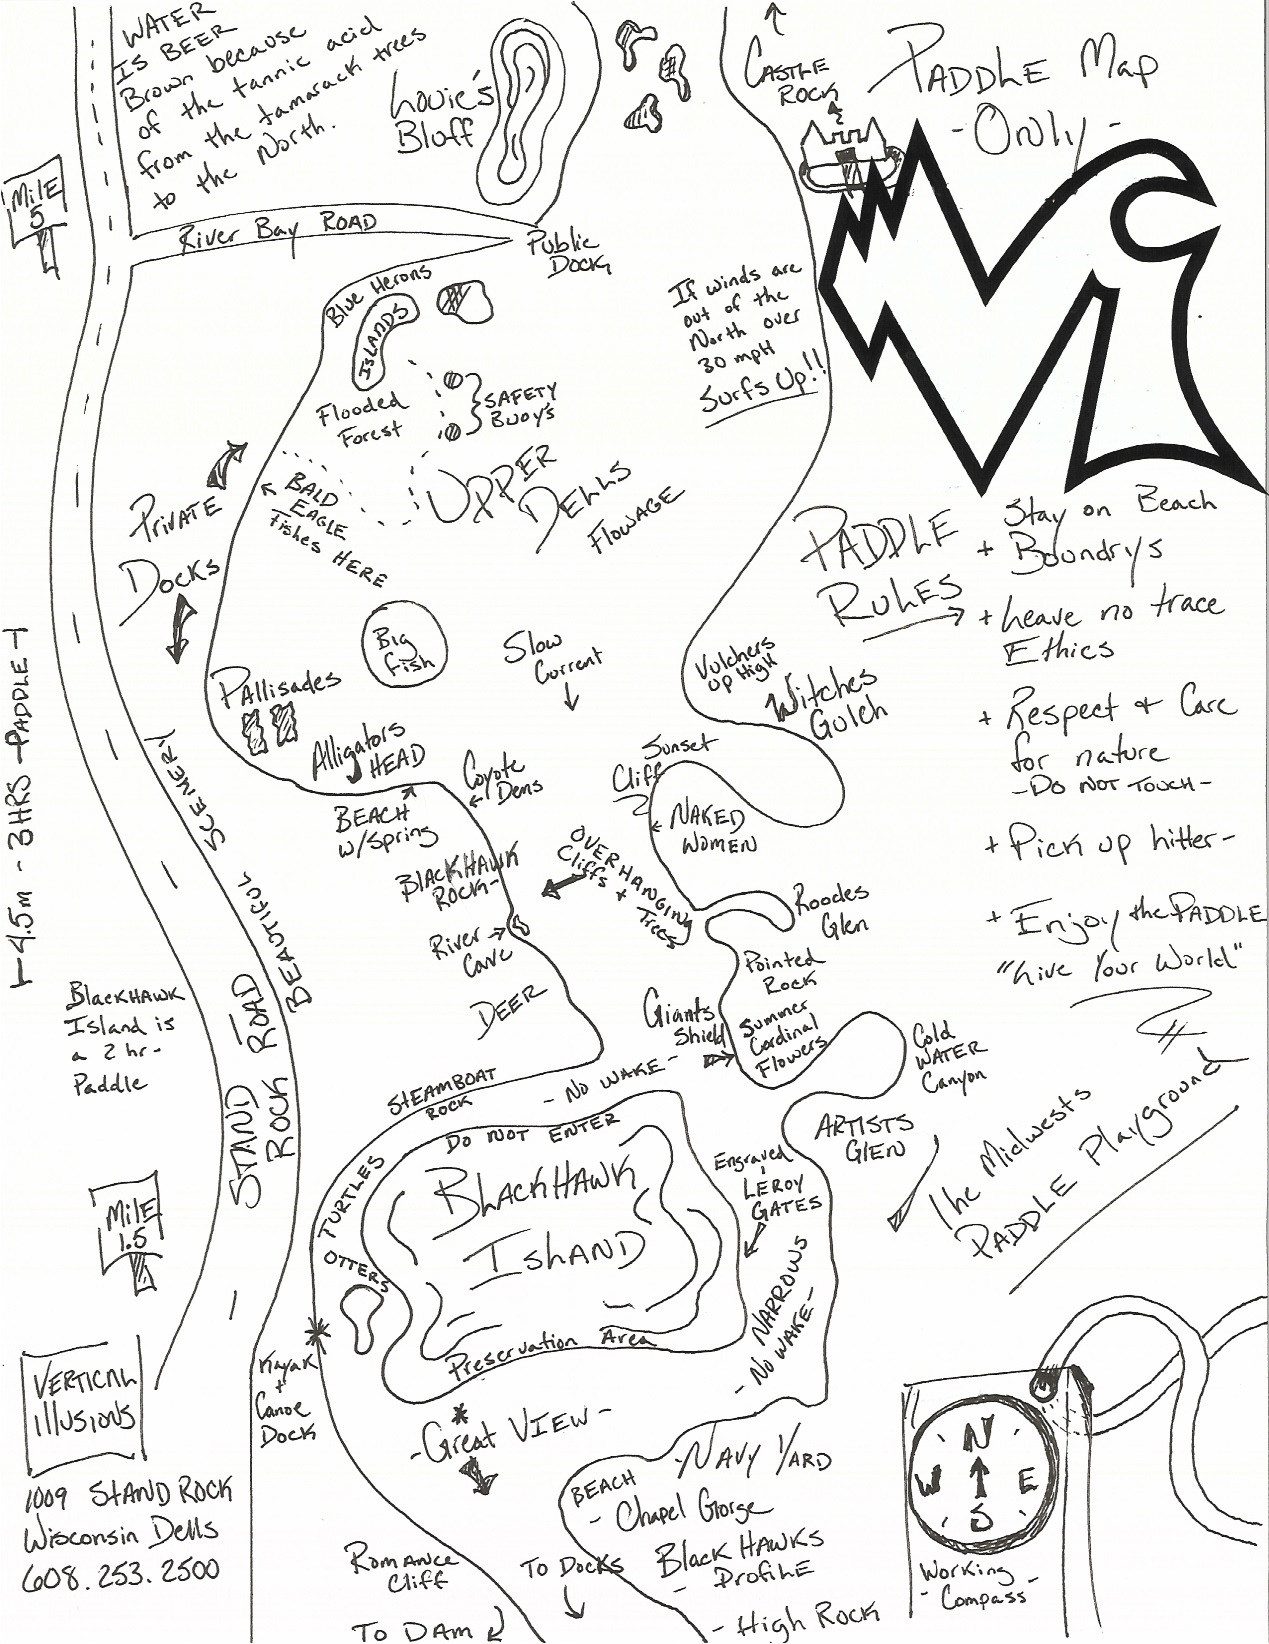 WATER
IS BEER
Brown because
of the tannic acid
from the tamarack trees
to the North.
Louie's
Bluff
CASTLE
ROCK
PADDLE Map
-Only-
Mile
5
River Bay ROAD
Public
Dock
Blue Herons
ISLANDS
If winds are
out of the
North over
30 mpH
Surfs Up!!
Flooded
Forest
SAFETY
Buoy's
UPPER
DELLS
Flowage
BALD
EAGLE
Fishes HERE
PRIVATE
DOCKS
PADDLE
RULES
+ Stay on Beach
Boundrys
+ Leave no trace
Ethics
+ Respect + Care
for nature
-Do NOT TOUCH-
+ Pick up litter-
+ Enjoy the PADDLE
"Live Your World"
Big
Fish
Slow
Current
Vulchers
Up High
Witches
Gulch
Pallisades
Alligators
HEAD
Sunset
Cliff
Coyote
Dens
BEACH
w/Spring
NAKED
WOMEN
4.5m - 3HRS - PADDLE
BEAUTIFUL SCENERY
BLACKHAWK
ROCK-
OVERHANGING
Cliffs +
Trees
Roodes
Glen
River
Cave
Pointed
Rock
DEER
Giants
Shield
Summer
Cardinal
Flowers
Cold
WATER
Canyon
BlackHAWK
Island is
a 2 hr-
Paddle
STAND ROAD
ROCK
STEAMBOAT
ROCK
- No WAKE -
DO NOT ENTER
ARTISTS
GlEN
The Midwests
PADDLE Playground
Engraved
LEROY
GATES
BLACKHAWK
ISLAND
TURTLES
OTTERS
Mile
1.5
NARROWS
- No WAKE -
Preservation Area
VERTICAL
illUSIONS
Kayak
+
Canoe
DOCK
- Great VIEW -
1009 STAND ROCK
Wisconsin Dells
608.253.2500
NAVY YARD
BEACH
- Chapel Gorge
Black HAWKS
- PROFILE
- High ROCK
ROMANCE
Cliff
To DOCKS
To DAM
N
W E
S
Working
- Compass -